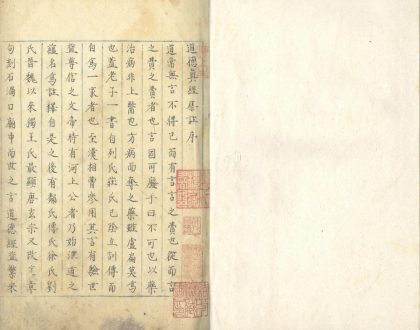 道德眞經集註序
道常無言不得已而有言言之費也從而言
之費之費者也言固可廢乎曰不可也以藥
治病非上醫也方病而奪之藥雖盧扁莫爲
也蓋老子一書自列氏莊氏已陰立訓傳而
自爲一家者也至漢相曹參用其言有驗世
益尊信之文帝時有河上公者乃始深道之
蘊名爲註釋自是之後有嚴氏傅氏徐氏劉
氏晉魏以來獨王氏最顯唐玄宗又改定章
句刻石渦口廟中而世之言道德經益繁米